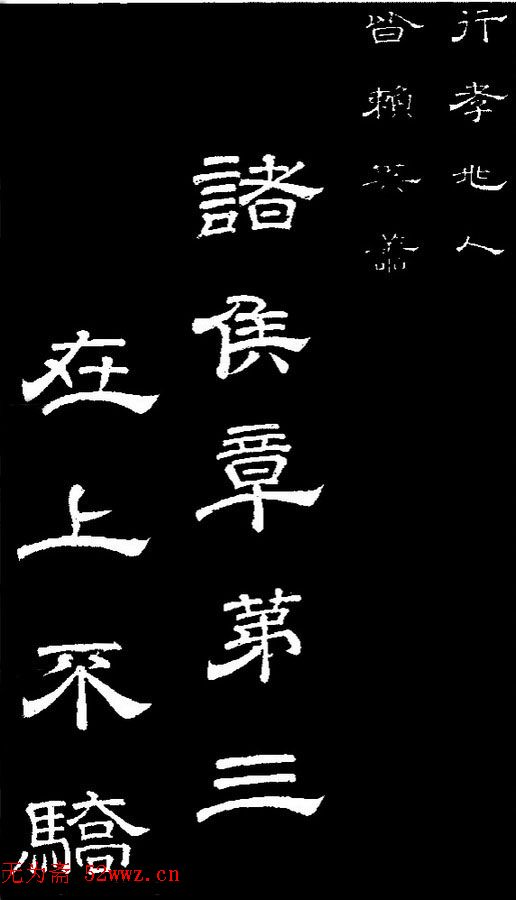 行孝兆人
皆賴其善
諸侯章第三
在上不驕
无为斋 52wwz.cn